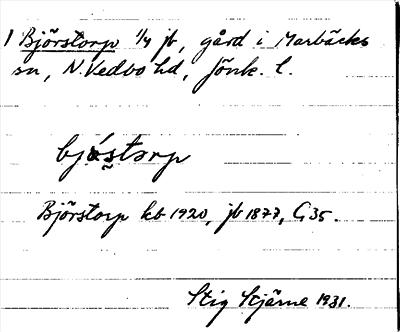 1 Björstorp 1/4 jb, gård i Marbäcks
sn, N. Vedbo hd, Jönk. l.
bjǿstorp
Björstorp kb 1920, jb 1877, G35.
Stig Stjärne 1931.